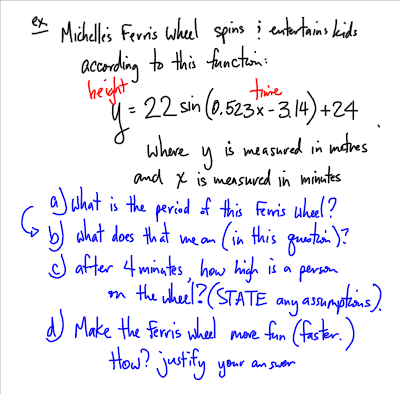 ex Michelle's Ferris Wheel spins & entertains kids
according to this function:
height time
y = 22 sin (0.523x - 3.14) + 24
where y is measured in metres
and x is measured in minutes
a) What is the period of this Ferris Wheel?
b) What does that mean (in this question)?
c) after 4 minutes, how high is a person
on the wheel? (STATE any assumptions).
d) Make the Ferris wheel more fun (faster.)
How? justify your answer